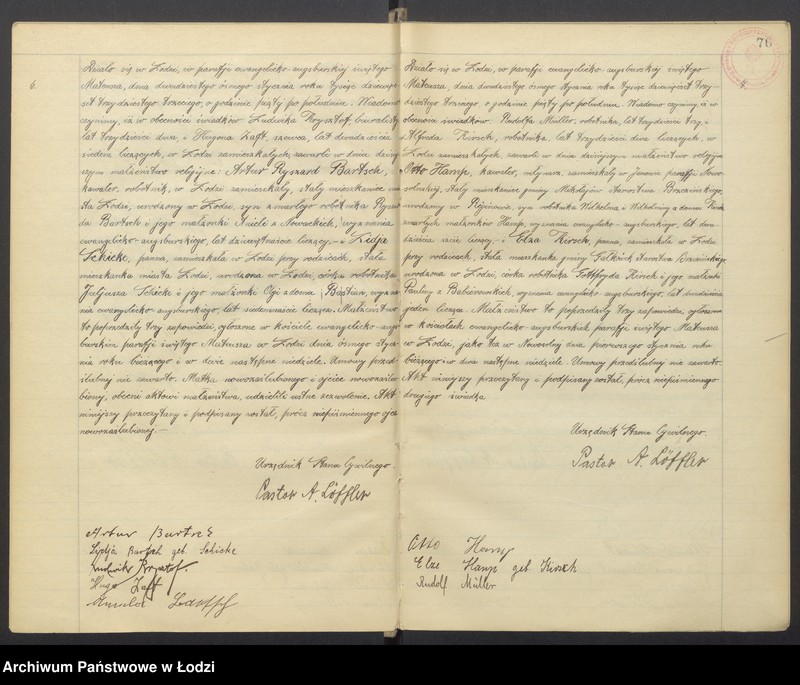 6.
Działo się w Łodzi, w parafji ewangelicko-augsburskiej świętego
Mateusza, dnia dwudziestego ósmego stycznia roku tysiąc dziewięć-
set trzydziestego trzeciego, o godzinie piątej po południu. Wiadomo
czynimy, iż w obecności świadków Ludwika Krysztof, biuralisty
lat trzydzieści dwa, i Hugona Zaft, szewca, lat dwadzieścia
siedem liczących, w Łodzi zamieszkałych, zawarli w dniu dzisiej-
szym małżeństwo religijne: Artur Ryszard Bartsch,
kawaler, robotnik, w Łodzi zamieszkały, stały mieszkaniec mia-
sta Łodzi, urodzony w Łodzi, syn zmarłego robotnika Ryszar-
da Bartsch i jego małżonki Anieli z Nowackich, wyznania
ewangelicko-augsburskiego, lat dziewiętnaście liczący, – i Lidja
Schicke, panna, zamieszkała w Łodzi przy rodzicach, stała
mieszkanka miasta Łodzi, urodzona w Łodzi, córka robotnika
Juljusza Schicke i jego małżonki Olgi z domu Bastian, wyzna-
nia ewangelicko-augsburskiego, lat siedemnaście licząca. Małżeństwo
to poprzedziły trzy zapowiedzi, ogłoszone w kościele ewangelicko-augs-
burskim parafji świętego Mateusza w Łodzi dnia ósmego stycz-
nia roku bieżącego i w dwie następne niedziele. Umowy przed-
ślubnej nie zawarto. Matka nowozaślubionego i ojciec nowozaślu-
bionej, obecni aktowi małżeństwa, udzielili ustne zezwolenie. Akt
niniejszy przeczytany i podpisany został, prócz niepiśmiennego ojca
nowozaślubionej. —
Urzędnik Stanu Cywilnego.
Pastor A. Löffler
Artur Bartsch
Lydja Bartsch geb. Schicke
Ludwik Krysztof.
Hugo Zaft
Bartsch
76
7.
Działo się w Łodzi, w parafji ewangelicko-augsburskiej świętego
Mateusza, dnia dwudziestego ósmego stycznia roku tysiąc dziewięćset trzy-
dziestego trzeciego o godzinie piątej po południu. Wiadomo czynimy, iż w
obecności świadków Rudolfa Müller, robotnika, lat trzydzieści trzy, i
Alfreda Kirsch, robotnika, lat trzydzieści dwa liczących, w
Łodzi zamieszkałych, zawarli w dniu dzisiejszym małżeństwo religijne
Otto Hamp, kawaler, młynarz, zamieszkały w Janowie parafji Nowo-
solneńskiej, stały mieszkaniec gminy Mikołajów starostwa Brzezińskiego,
urodzony w syn robotnika Wilhelma i Wilhelminy z domu
zmarłych małżonków Hamp, wyznania ewangelicko-augsburskiego, lat dwa-
dzieścia liczący, – i Elza Kirsch, panna, zamieszkała w Łodzi
przy rodzicach, stała mieszkanka gminy Gałkówek starostwa Brzezińskiego
urodzona w Łodzi, córka robotnika Gottfryda Kirsch i jego małżonki
Pauliny z wyznania ewangelicko-augsburskiego, lat dwadzieścia
jeden licząca. Małżeństwo to poprzedziły trzy zapowiedzi, ogłoszone
w kościołach ewangelicko-augsburskich parafji świętego Mateusza
w Łodzi, jako też w Nowosolnej dnia pierwszego stycznia roku
bieżącego i w dwie następne niedziele. Umowy przedślubnej nie zawarto.
Akt niniejszy przeczytany i podpisany został, prócz niepiśmiennego
drugiego świadka.
Urzędnik Stanu Cywilnego.
Pastor A. Löffler
Otto Hamp
Elze Hamp geb Kirsch
Rudolf Müller
Archiwum Państwowe w Łodzi